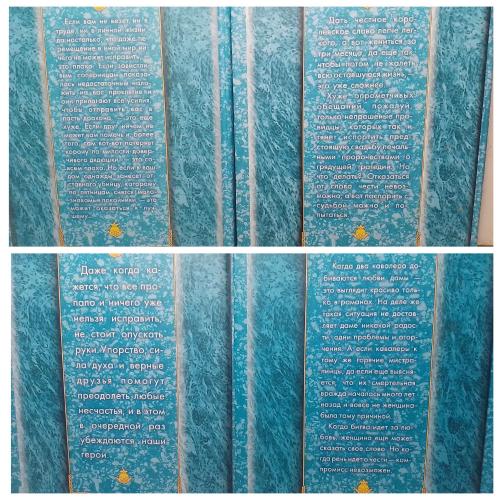 Если вам не везет ни в
труде, ни в личной жизни
да настолько, что даже пе-
ремещение в иной мир ни-
чего не может исправить, —
это плохо. Если завистли-
вым соперницам показа-
лось недостаточным нало-
жить на вас проклятие и
они прилагают все усилия,
чтобы отправить вас в
пасть дракона, — это еще
хуже. Если друг ничем не
может вам помочь и, более
того, сам вот-вот потеряет
корону по милости довер-
чивого дядюшки — это со-
всем плохо. Но если в ваш
дом однажды занесет от-
ставного убийцу, которому
по пятницам снятся мало-
знакомые покойники, — это
может оказаться к луч-
шему...
Дать честное коро-
левское слово легче лег-
кого, а вот жениться за
три месяца, да еще так,
чтобы потом не жалеть
всю оставшуюся жизнь, —
это уже сложнее.
Хуже опрометчивых
обещаний, пожалуй,
только непрошеные про-
видцы, которых так и
тянет испортить пред-
стоящую свадьбу печаль-
ными пророчествами о
грядущей трагедии. Но
что делать? Отказаться
от слова чести невоз-
можно, а вот поспорить с
судьбой можно и по-
пытаться.
Даже когда ка-
жется, что все про-
пало и ничего уже
нельзя исправить,
не стоит опускать
руки. Упорство, си-
ла духа и верные
друзья помогут
преодолеть любые
несчастья, и в этом
в очередной раз
убеждаются наши
герои.
Когда два кавалера до-
биваются любви дамы —
это выглядит красиво только
в романах. На деле же
такая ситуация не достав-
ляет даме никакой радос-
ти, одни проблемы и огор-
чения. А если кавалеры к
тому же горячие мистра-
лийцы, да если еще выясня-
ется, что их смертельная
вражда началась много лет
назад и вовсе не женщина
была тому причиной...
Когда битва идет за лю-
бовь, женщина еще может
сказать свое слово. Но ко-
гда речь идет о чести — ком-
промисс невозможен.